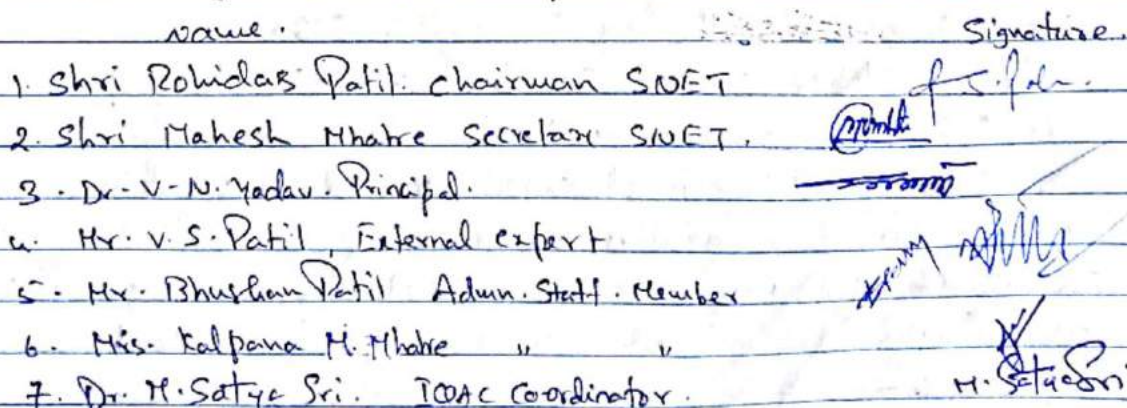 Name. Signature.
1. Shri Rohidas Patil. Chairman SNET
2. Shri Mahesh Mhatre Secretary SNET.
3. Dr. V. N. Yadav. Principal.
4. Mr. V. S. Patil, External expert
5. Mr. Bhushan Patil Admn. Staff. Member
6. Mrs. Kalpana M. Mhatre " "
7. Dr. M. Satya Sri. IQAC Coordinator. M. Satya Sri